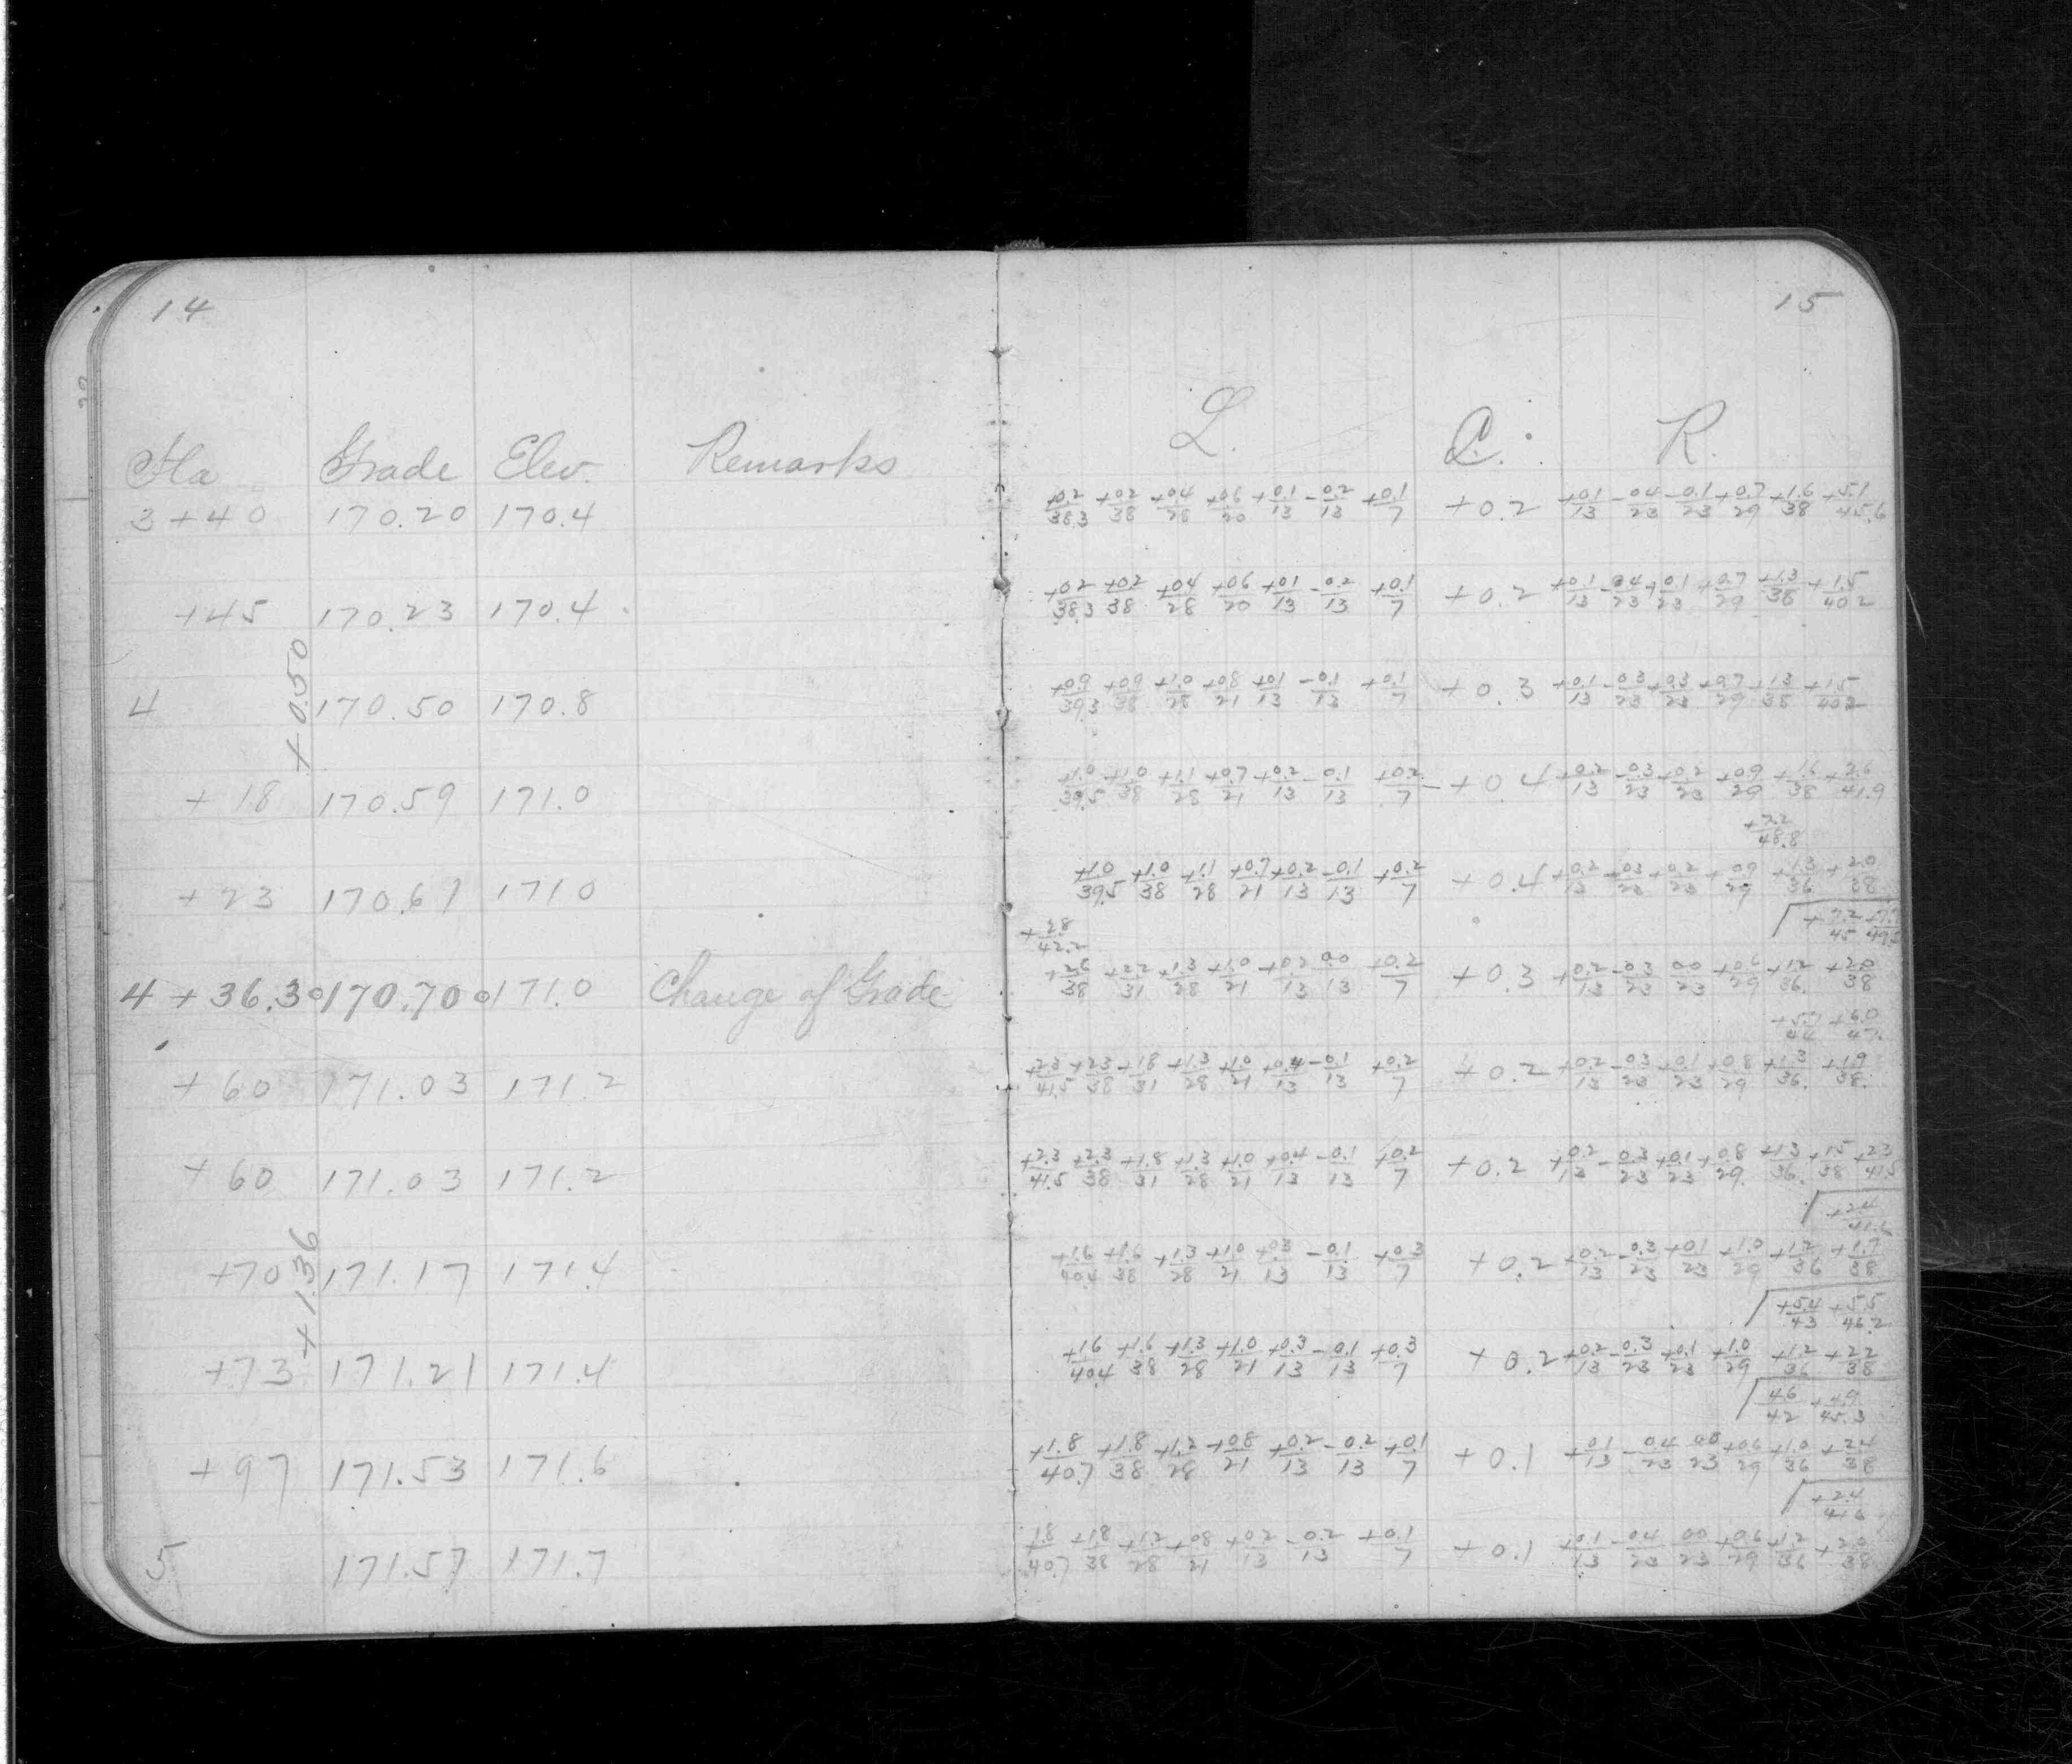 14
Sta Grade Elev. Remarks
3+40 170.20 170.4
+45 170.23 170.4
+0.50
4 170.50 170.8
+18 170.59 171.0
+23 170.61 171.0
4+36.30 170.700 171.0 Change of Grade
+60 171.03 171.2
+60 171.03 171.2
+1.36
+70 171.17 171.4
+73 171.21 171.4
+97 171.53 171.6
5 171.57 171.7
15
L. C. R.
+0.2/38.3 +0.2/38 +0.4/28 +0.6/20 +0.1/13 -0.2/13 +0.1/7 +0.2 +0.1/13 -0.4/23 -0.1/23 +0.7/29 +1.6/38 +5.1/45.6
+0.2/38.3 +0.2/38 +0.4/28 +0.6/20 +0.1/13 -0.2/13 +0.1/7 +0.2 +0.1/13 -0.4/23 +0.1/23 +0.7/29 +1.3/38 +1.5/40.2
+0.9/39.3 +0.9/38 +1.0/28 +0.8/21 +0.1/13 -0.1/13 +0.1/7 +0.3 +0.1/13 -0.3/23 +0.3/23 +0.7/29 +1.3/38 +1.5/40.2
+1.0/39.5 +1.0/38 +1.1/28 +0.7/21 +0.2/13 -0.1/13 +0.2/7 +0.4 +0.2/13 -0.3/23 +0.2/23 +0.9/29 +1.6/38 +2.6/41.9
+7.2/48.8
+1.0/39.5 +1.0/38 +1.1/28 +0.7/21 +0.2/13 -0.1/13 +0.2/7 +0.4 +0.2/13 -0.3/23 +0.2/23 +0.9/29 +1.3/36 +2.0/38
+2.8/42.2 +7.2/45
+2.6/38 +2.2/31 +1.3/28 +1.0/21 +0.2/13 0.0/13 +0.2/7 +0.3 +0.2/13 -0.3/23 0.0/23 +0.6/29 +1.2/36 +2.0/38
+6.0/47
+2.3/41.5 +2.3/38 +1.8/31 +1.3/28 +1.0/21 +0.4/13 -0.1/13 +0.2/7 +0.2 +0.2/13 -0.3/23 +0.1/23 +0.8/29 +1.3/36 +1.9/38
+2.3/41.5 +2.3/38 +1.8/31 +1.3/28 +1.0/21 +0.4/13 -0.1/13 +0.2/7 +0.2 +0.2/13 -0.3/23 +0.1/23 +0.8/29 +1.3/36 +1.5/38 +2.3/41.5
+2.4/41.6
+1.6/40.4 +1.6/38 +1.3/28 +1.0/21 +0.3/13 -0.1/13 +0.3/7 +0.2 +0.2/13 -0.3/23 +0.1/23 +1.0/29 +1.2/36 +1.7/38
+5.4/43 +5.5/46.2
+1.6/40.4 +1.6/38 +1.3/28 +1.0/21 +0.3/13 -0.1/13 +0.3/7 +0.2 +0.2/13 -0.3/23 +0.1/23 +1.0/29 +1.2/36 +2.2/38
4.6/42 +4.9/45.3
+1.8/40.7 +1.8/38 +1.2/28 +0.8/21 +0.2/13 -0.2/13 +0.1/7 +0.1 +0.1/13 -0.4/23 0.0/23 +0.6/29 +1.0/36 +2.4/38
+2.4/41.6
1.8/40.7 +1.8/38 +1.2/28 +0.8/21 +0.2/13 -0.2/13 +0.1/7 +0.1 +0.1/13 -0.4/23 0.0/23 +0.6/29 +1.2/36 +2.0/38